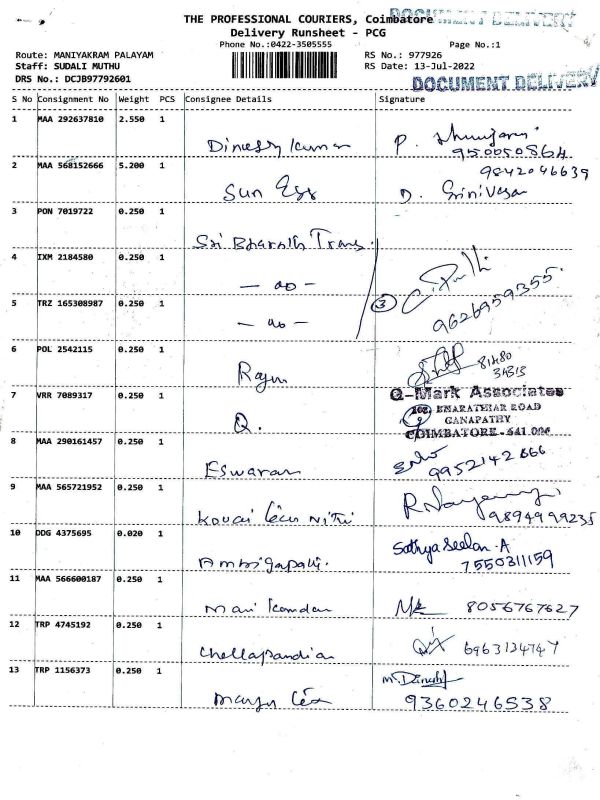 THE PROFESSIONAL COURIERS, Coimbatore
DOCUMENT DELIVERY
Delivery Runsheet - PCG
Phone No.:0422-3505555
Page No.:1
Route: MANIYAKRAM PALAYAM
RS No.: 977926
Staff: SUDALI MUTHU
RS Date: 13-Jul-2022
DRS No.: DCJB97792601
DOCUMENT DELIVERY
S No Consignment No Weight PCS Consignee Details Signature
1 MAA 292637810 2.550 1
Dinesh Kumar P.
950050864
2 MAA 568152666 5.200 1
9842046639
Sun Egg D. Srinivasan
3 PON 7019722 0.250 1
Sri Bharath Trans.
4 IXM 2184580 0.250 1
- do -
5 TRZ 165308987 0.250 1
- do - 3 9626959355.
6 POL 2542115 0.250 1
Raju 81480
31313
7 VRR 7089317 0.250 1
Q-Mark Associates
BHARATHIAR ROAD
GANAPATHY
COIMBATORE - 641 006
Q.
8 MAA 290161457 0.250 1
Eswaran 9952142666
9 MAA 565721952 0.250 1
Kovai 9894999235
10 DDG 4375695 0.020 1
Sathya Seelan.A
7550311159
11 MAA 566600187 0.250 1
Mari 8056767627
12 TRP 4745192 0.250 1
Chellapandian 6963134747
13 TRP 1156373 0.250 1
9360246538